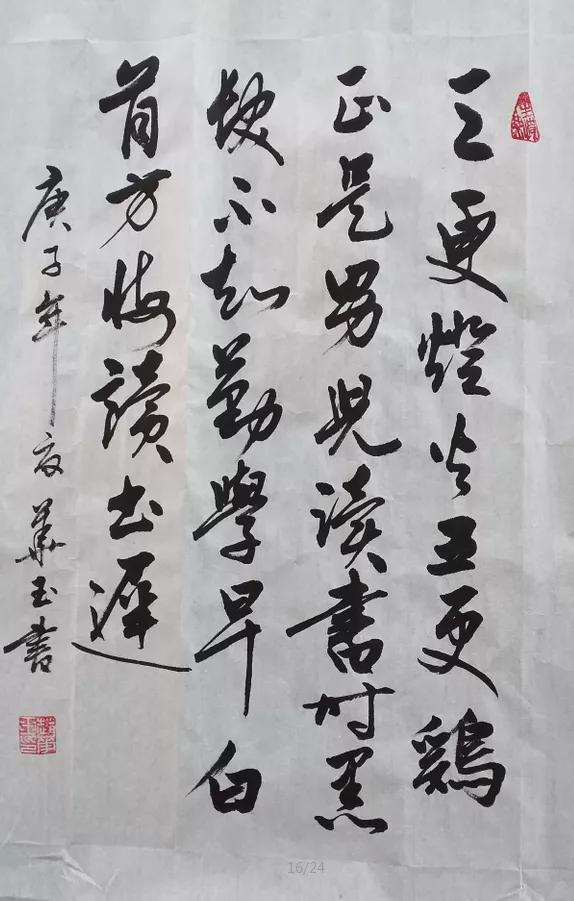 三更燈火五更鷄
正是男兒讀書时黑
髮不知勤學早白
首方悔讀书遲
庚子年夏華玉書
16/24